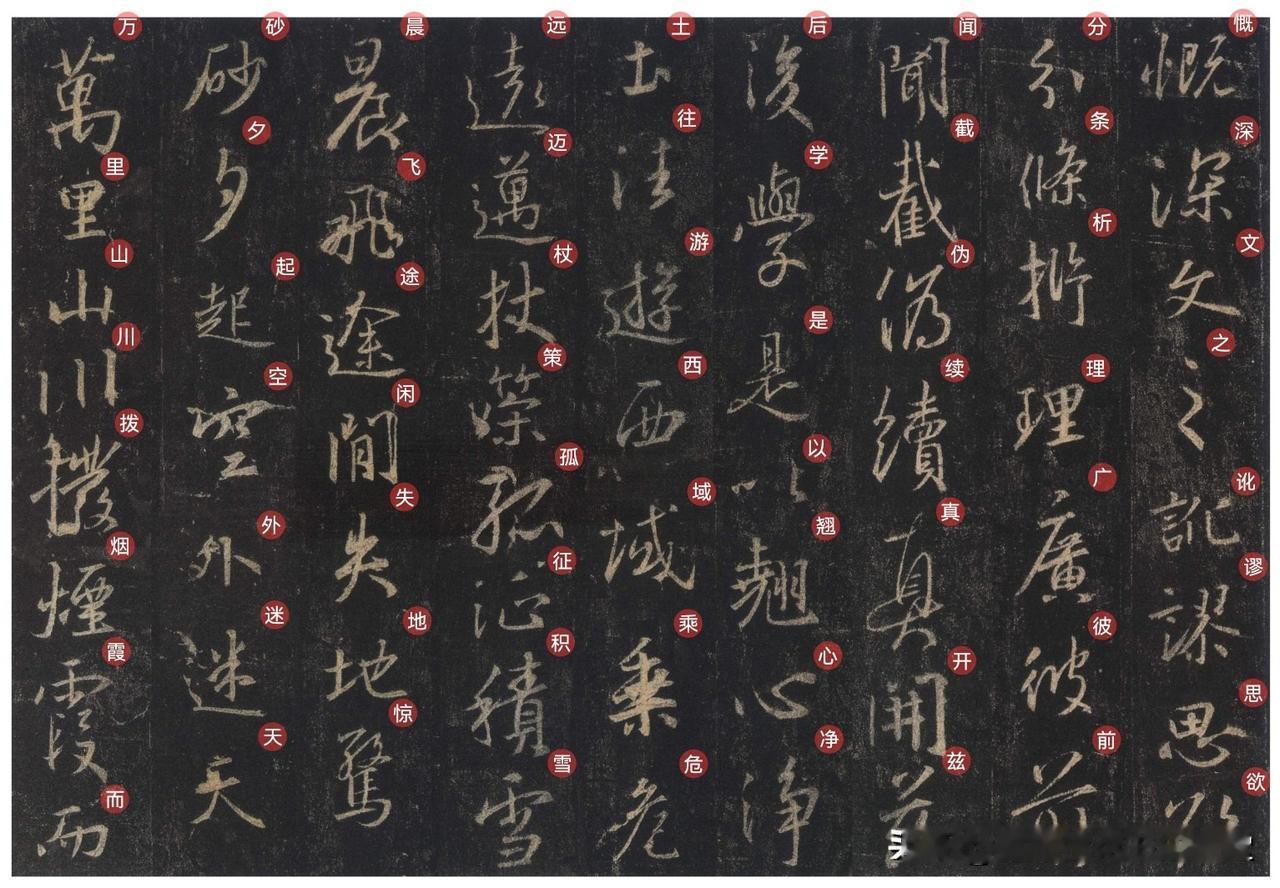 慨深文之訛謬思欲
慨深文之讹谬思欲
分條析理廣彼前
分条析理广彼前
聞截偽續真開茲
闻截伪续真开兹
後學是以翹心淨
后学是以翘心净
土往遊西域乘危
土往游西域乘危
遠邁杖策孤征積雪
远迈杖策孤征积雪
晨飛途間失地驚
晨飞途闲失地惊
砂夕起空外迷天
砂夕起空外迷天
萬里山川撥煙霞而
万里山川拨烟霞而